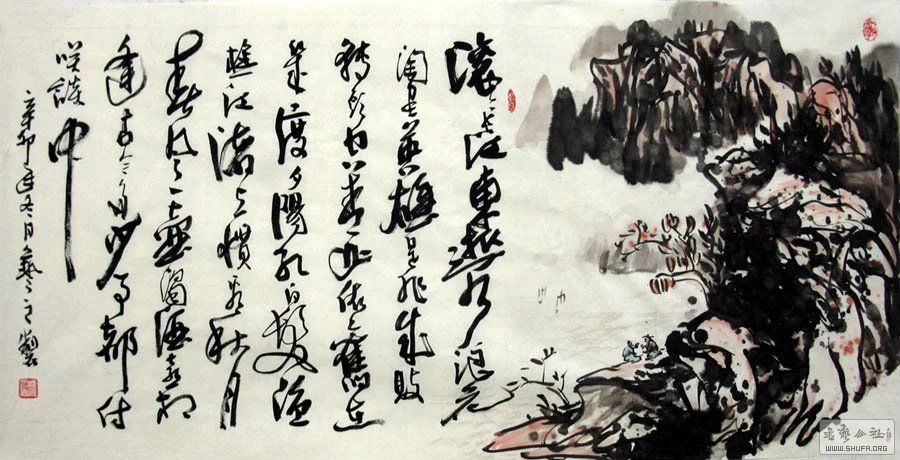 滚々长江東逝水浪花
淘尽英雄是非成败
转头空青山依舊在
幾度夕陽红白髮渔
樵江渚上惯看秋月
春风一壶濁酒喜相
逢古今多少事都付
咲談中
辛卯年冬月
书艺公社
WWW.SHUFA.ORG